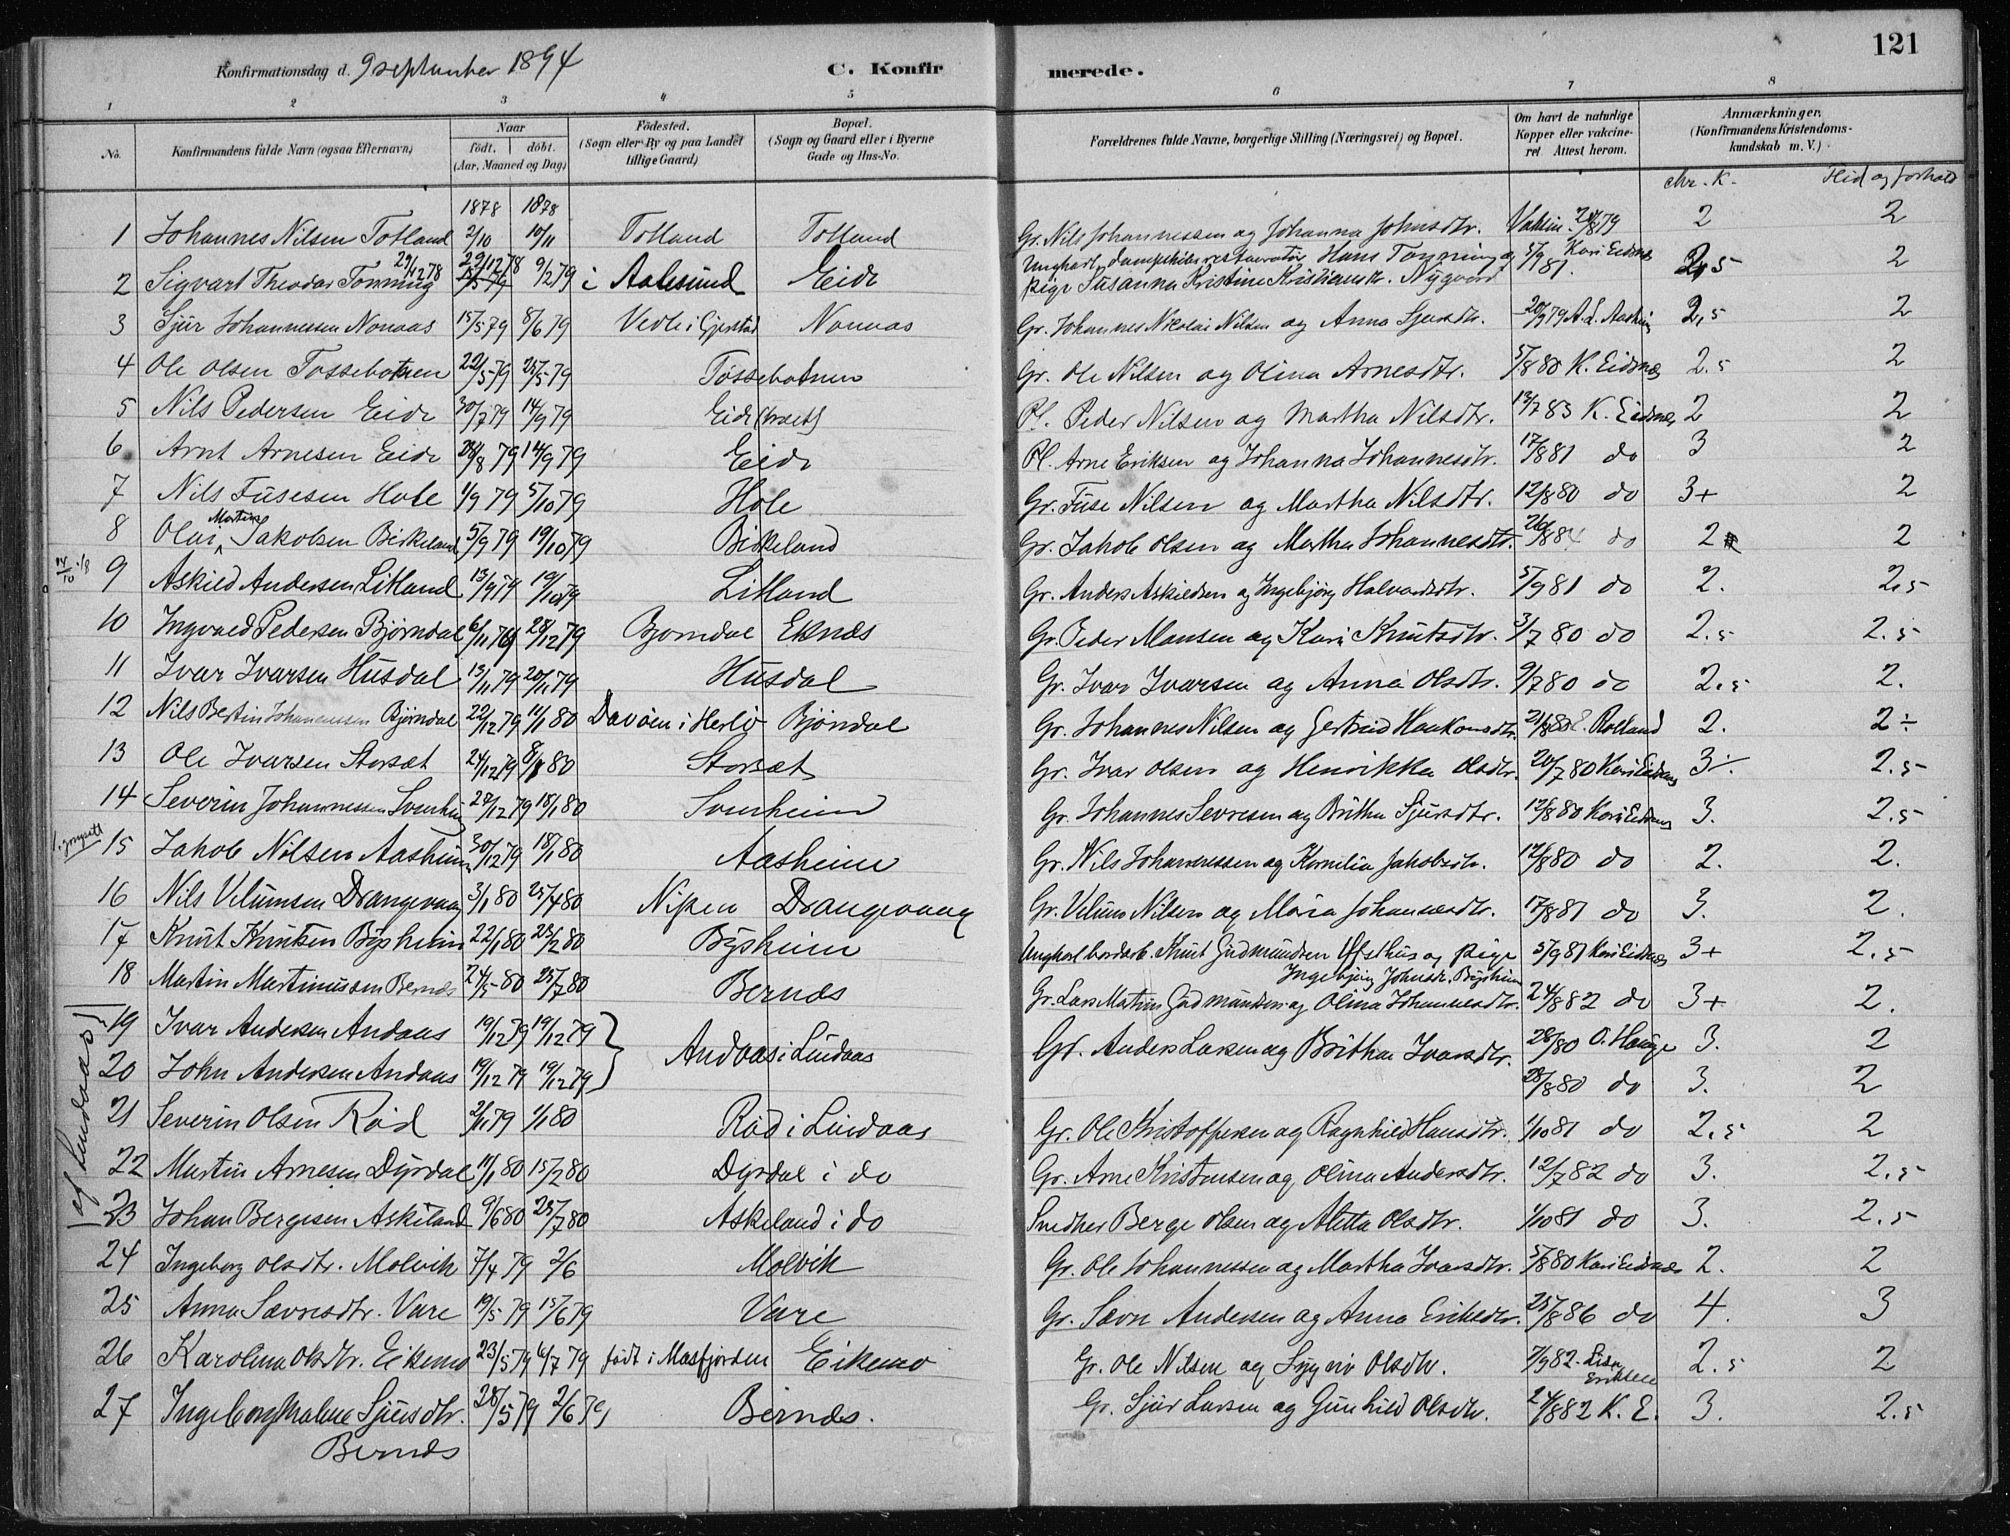 121
Konfirmationsdag d. 9 september 1894 C. Konfir merede.
1 2 3 4 5 6 7 8
No. Konfirmandens fulde Navn (ogsaa Efternavn) Naar født. døbt. (Aar, Maaned og Dag) Fødested. (Sogn eller By og paa Landet tillige Gaard) Bopæl. (Sogn og Gaard eller i Byerne Gade og Hus-No. Forældrenes fulde Navne, borgerlige Stilling (Næringsvei) og Bopæl. Om havt de naturlige Kopper eller vakcineret Attest herom. Anmærkninger. (Konfirmandens Kristendomskundskab m. V.)
1878 1878 chr. K. Flid og forhold
1 Johannes Nilsen Totland 2/10 10/11 Totland Totland Gr. Nils Johannessen og Johanna Johnsdtr. Vakcin. 79 2 2
2 Sigvart Theodor Tonning 29/12 78 9/2 79 i Aalesund Eide Ungkarl dampskibsrestauratør Hans Tonning og pige Susanna Kristine Kristiansdtr. Nygaard 5/9 81. Kari Eidnes 2,5 2
3 Sjur Johannessen Nonaas 15/5 79 8/6 79 Vedle i Gjerstad Nonaas Gr. Johannes Nikolai Nilsen og Anna Sjursdtr. 20/9 79 A. L. 2,5 2
4 Ole Olsen Tossebotnen 22/5 79 25/5 79 Tossebotnen Gr. Ole Nilsen og Olina Arnesdtr. 5/8 80 K. Eidnes 2.5 2
5 Nils Pedersen Eide 30/7 79 14/9 79 Eide Pl. Peder Nilsen og Martha Nilsdtr. 13/7 83 K. Eidsnes 2 2
6 Arnt Arnesen Eide 28/8 79 14/9 79 Eide Pl. Arne Eriksen og Johanna Johannesdtr. 17/8 81 do 3 2
7 Nils Fusesen Hole 1/9 79 5/10 79 Hole Gr. Fuse Nilsen og Martha Nilsdtr. 12/8 80 do 3+ 2
8 Olai Martin Jakobsen Birkeland 5/9 79 19/10 79 Birkeland Gr. Jakob Olsen og Martha Johannesdtr. 26/8 84 do 2 2
9 Askild Andersen Litland 13/9 79 19/10 79 Litland Gr. Anders Askildsen og Ingebjørg Halvardsdtr. 5/9 81 do 2. 2,5
10 Ingvald Pedersen Bjørndal 6/11 79 28/12 79 Bjorndal Eknes Gr. Peder Monsen og Kari Knutsdtr. 3/7 80 do 2.5 2.5
11 Ivar Ivarsen Husdal 13/11 79 20/11 79 Husdal Gr. Ivar Ivarsen og Anna Olsdtr. 9/7 80 do 2.5 2.
12 Nils Bertin Johannessen Bjørndal 22/12 79 11/1 80 Davøen i Herlø Bjøndal Gr. Johannes Nilsen og Gertrud Haakonsdtr. 21/8 80 Rolland 2. 2÷
13 Ole Ivarsen Storsæt 24/12 79 8/1 80 Storsæt Gr. Ivar Olsen og Henrikka Olsdtr. 20/7 80 Kari Eidnes 3÷. 2.5
14 Severin Johannessen Svenheim 28/12 79 18/1 80 Svenheim Gr. Johannes Sevresen og Britha Sjursdtr. 12/8 80 Kari Eidnes 3. 2.5
15 Jakob Nilsen Aasheim 30/12 79 18/1 80 Aasheim Gr. Nils Johannessen og Kornelia Jakobsdtr. 12/8 80 do 2. 2.
16 Nils Vilumsen Drangevaag 3/1 80 25/4 80 Nipen Drangevaag Gr. Vilum Nilsen og Maria Johannesdtr. 17/8 81 do 3. 2.
17 Knut Knutsen Bysheim 22/1 80 23/2 80 Bysheim Ungkarl bordarb. Knut Gudmundsen Ofsthus og pige Ingebjørg Johnsdtr. Bysheim 5/9 81 Kari Eidnes 3+ 2.5
18 Martin Martinussen Bernes 24/5 80 25/7 80 Bernes Gr. Lars Matius Gudmundsen og Olina Johannesdtr. 24/8 82 do 3+ 2.
af Lindaas
19 Ivar Andersen Andaas 19/12 79 19/12 79 Andaas i Lindaas Gr. Anders Larsen og Britha Ivarsdtr. 28/80 O. Hauge 3. 2
20 John Andersen Andaas 19/12 79 19/12 79 28/8 80 do 3. 2
21 Severin Olsen Rød 2/11 79 1/1 80 Rød i Lindaas Gr. Ole Kristoffersen og Ragnhild Hansdtr. 1/10 81 do 2.5 2
22 Martin Arnesen Dyrdal 11/1 80 15/2 80 Dyrdal i do Gr. Arne Kristensen og Olina Andersdtr. 12/7 82 do 3. 2.5
23 Johan Bergesen Askeland 9/6 80 25/7 80 Askeland i do Snedker Berge Olsen og Aletta Olsdtr. 1/10 81 do 3. 2.5
24 Ingeborg Olsdtr. Molvik 7/4 79 2/6 Molvik Gr. Ole Johannessen og Martha Ivarsdtr. 5/8 80 Kari Eidnes 2. 2
25 Anna Sævresdtr. Vare 19/5 79 15/6 79 Vare Gr. Sævr Andersen og Anna Eriksdtr. 25/8 86 do 4. 3
26 Karolina Olsdtr. Eikemo 23/5 79 6/7 79 født i Masfjorden Eikemo Gr. Ole Nilsen og Sygniv Olsdtr. 7/9 82 Lisa Eriksen 2.5 2
27 Ingeborg Malene Sjursdtr. Bernes 28/5 79 2/6 79 Bernes. Gr. Sjur Larsen og Gunhild Olsdtr. 24/8 82 K. E. 3. 2.5